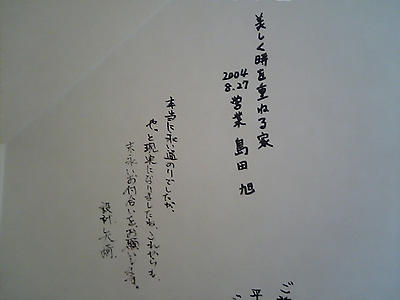 美しく時を重ねる家
2004
8.27
営業 島田 旭
本当に永い道のりでしたが、
やっと現実になりましたね。これからも
末永いお付合いをお願いします。
設計
ご
平
こ